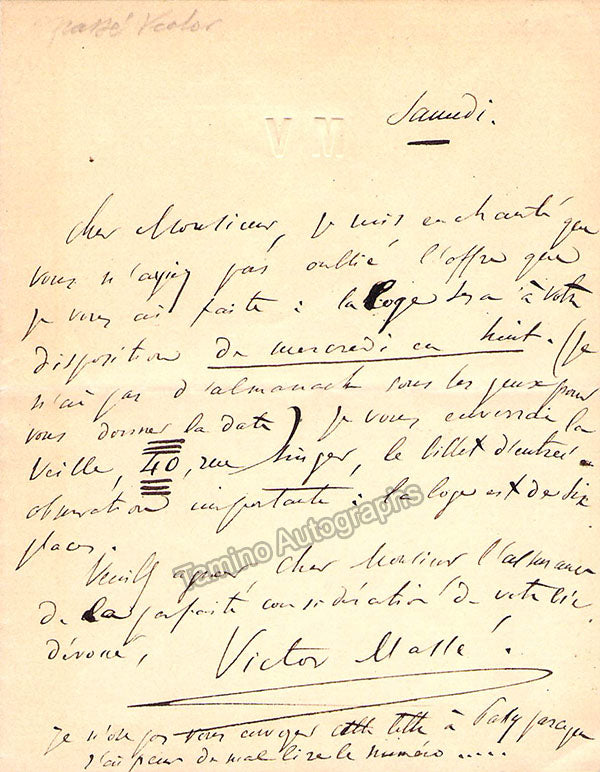 Massé Victor
V M
Samedi.
Cher Monsieur, je suis enchanté que
vous n'ayiez pas oublié l'offre que
je vous ai faite : la loge sera à votre
disposition de mercredi en huit. (je
n'ai pas d'almanach sous les yeux pour
vous donner la date) je vous enverrai la
veille, 40, rue Singer, le billet d'entrée.
observation importante : la loge est de six
places.
Veuillez agréer, cher Monsieur l'assurance
de la parfaite considération de votre bien
dévoué,
Victor Massé.
je n'ose pas vous envoyer cette lettre à Passy parceque
j'ai peur de mal lire le numéro .....
Tamino Autographs